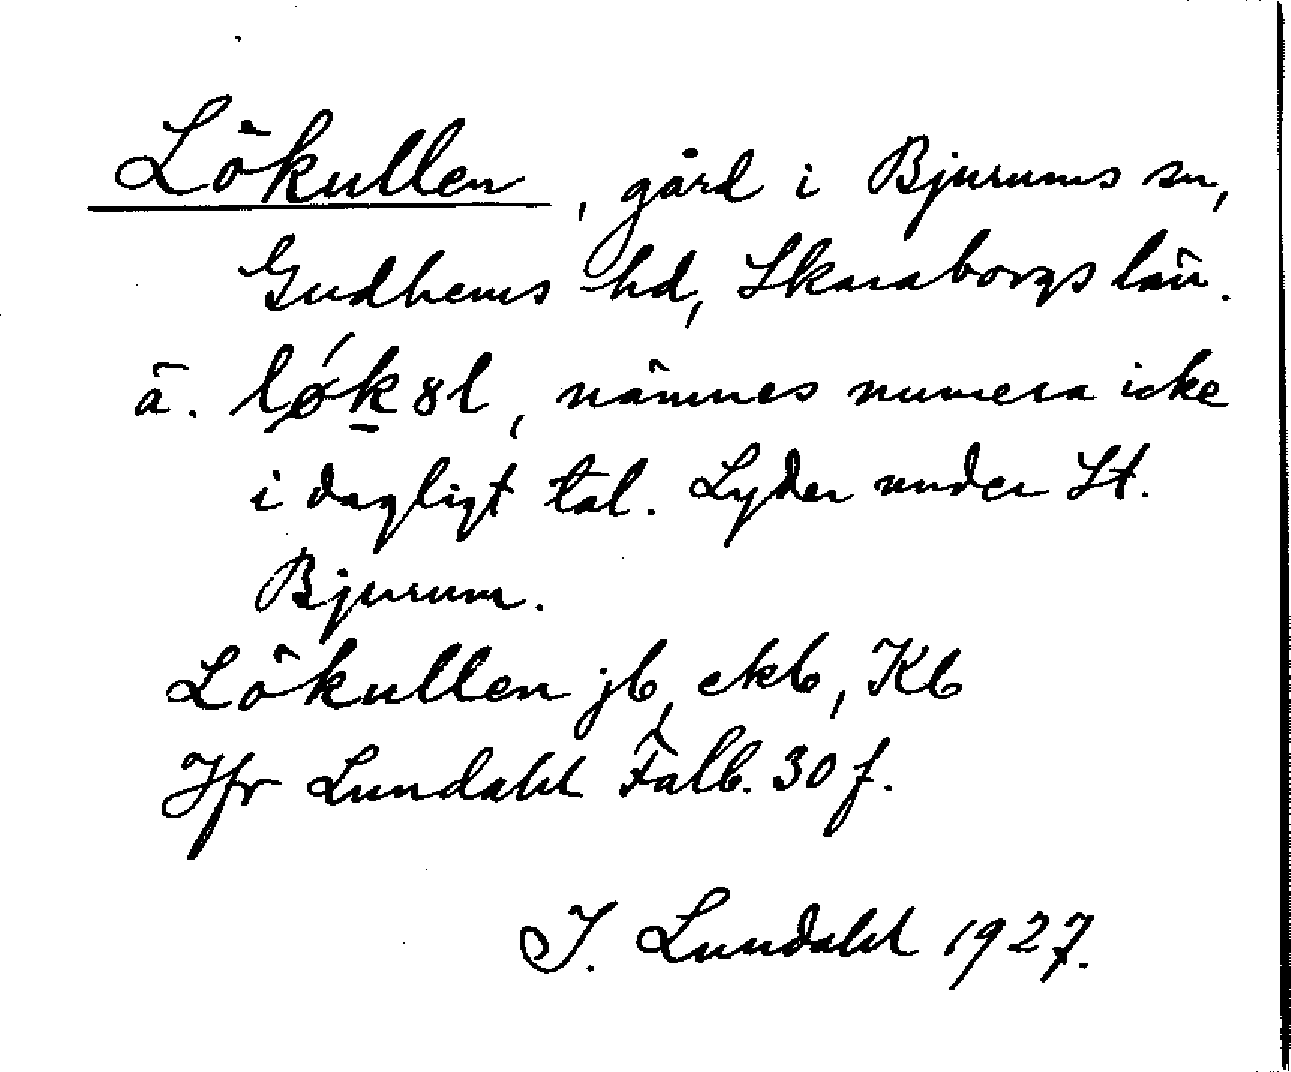 Lökullen, gård i Bjurums sn,
Gudhems hd, Skaraborgs län.
ä. lǿk8l, nämnes numera icke
i dagligt tal. Lyder under St.
Bjurum.
Lökullen jb, ekb, Kb
Jfr Lundahl Falb. 30 f.
I. Lundahl 1927.